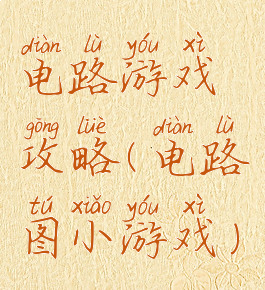 diàn lù yóu xì
电路游戏
gōng lüè ( diàn lù
攻略(电路
tú xiǎo yóu xì
图小游戏)